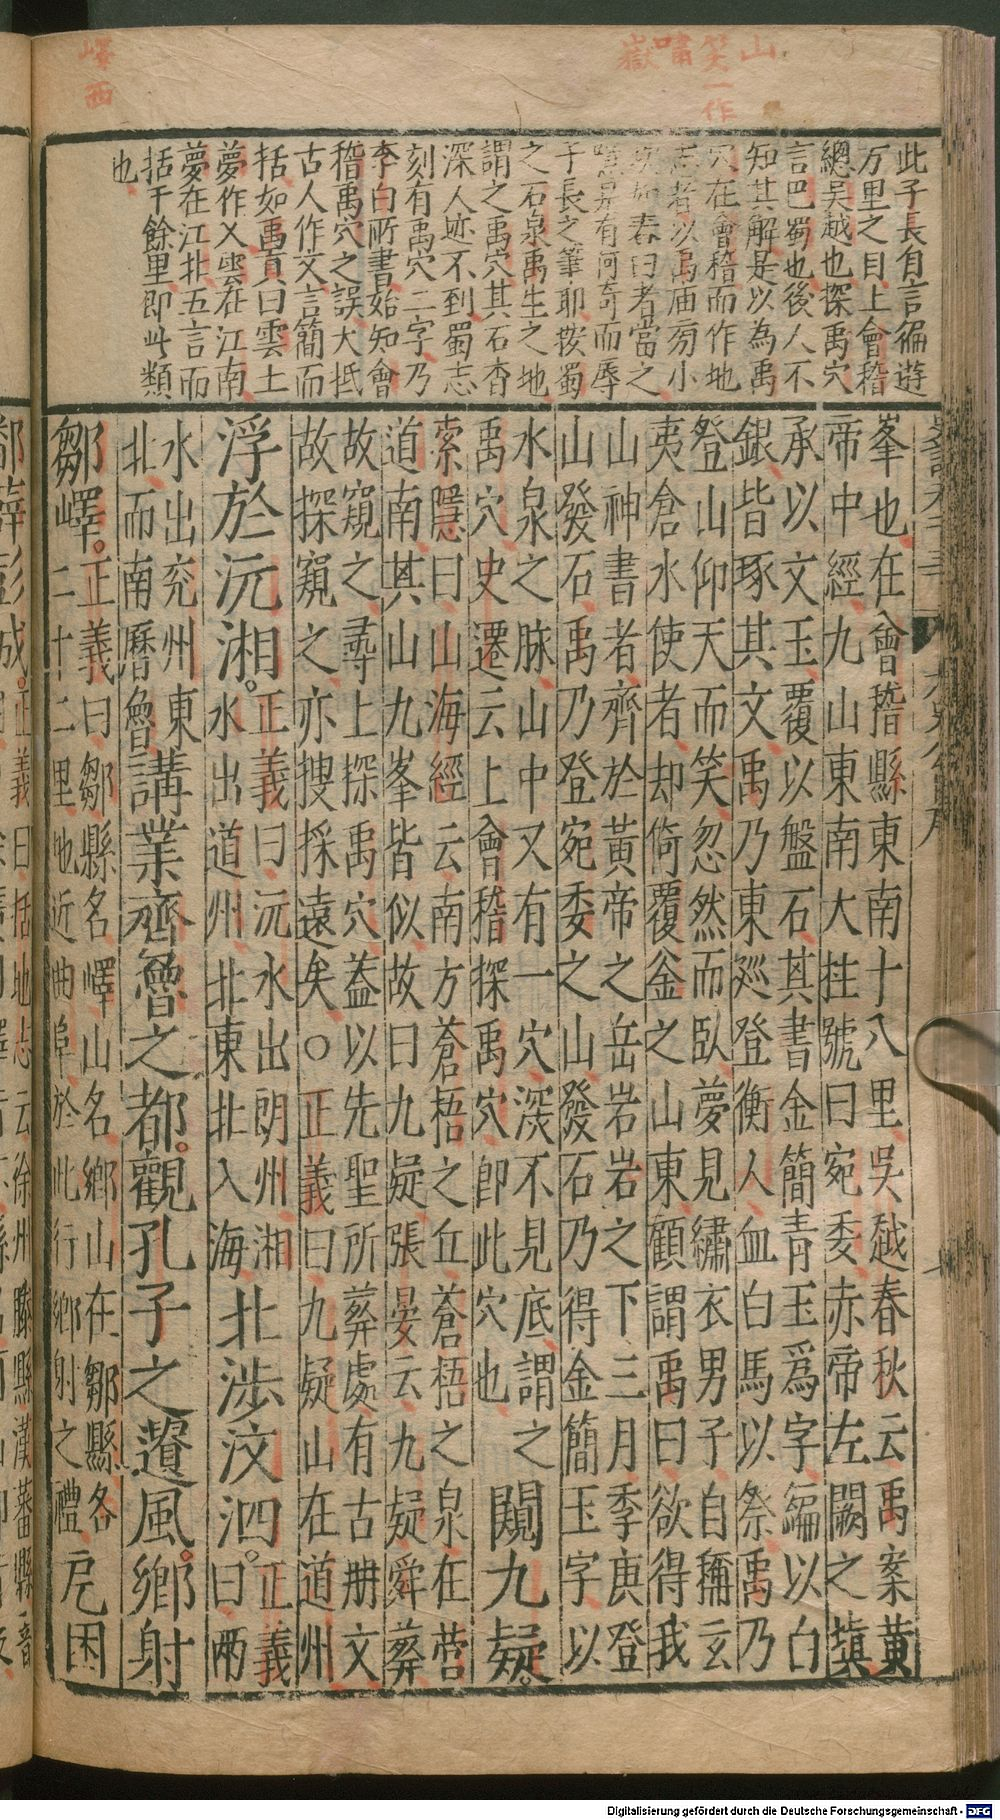 山
笑一作
嘯
嶽
嶧西
此子長自言徧遊
万里之目上會稽
總吳越也探禹穴
言巴蜀也後人不
知其解是以為禹
穴在會稽而作地
志者以禹庙旁小
如舂臼者當之
噫是有何奇而辱
子長之筆耶按蜀
之石泉禹生之地
謂之禹穴其石杳
深人迹不到蜀志
刻有禹穴二字乃
李白所書始知會
稽禹穴之誤大抵
古人作文言簡而
括如禹貢曰雲土
夢作乂雲在江南
夢在江北五言而
括千餘里即此類
也
峯也在會稽縣東南十八里吳越春秋云禹案黃
帝中經九山東南大柱號曰宛委赤帝左闕之塡
承以文玉覆以盤石其書金簡青玉爲字編以白
銀皆琢其文禹乃東廵登衡人血白馬以祭禹乃
登山仰天而笑忽然而臥夢見繡衣男子自稱玄
夷倉水使者却倚覆釜之山東顧謂禹曰欲得我
山神書者齊於黃帝之岳岩岩之下三月季庚登
山發石禹乃登宛委之山發石乃得金簡玉字以
水泉之脉山中又有一穴深不見底謂之
禹穴史遷云上會稽探禹穴卽此穴也
闚九疑
索隱曰山海經云南方蒼梧之丘蒼梧之泉在營
道南其山九峯皆似故曰九疑張晏云九疑舜葬
故窺之尋上探禹穴蓋以先聖所葬處有古冊文
故探窺之亦搜採遠矣○正義曰九疑山在道州
浮於沅湘
正義曰沅水出朗州湘
水出道州北東北入海
北涉汶泗
正義
曰兩
水出兖州東
北而南曆魯
講業齊魯之都觀孔子之遺風鄉射
鄒嶧
正義曰鄒縣名嶧山名鄉山在鄒縣名
二十二里地近曲阜於此行鄉射之禮
戹困
鄱薛彭城
Digitalisierung gefördert durch die Deutsche Forschungsgemeinschaft - DFG